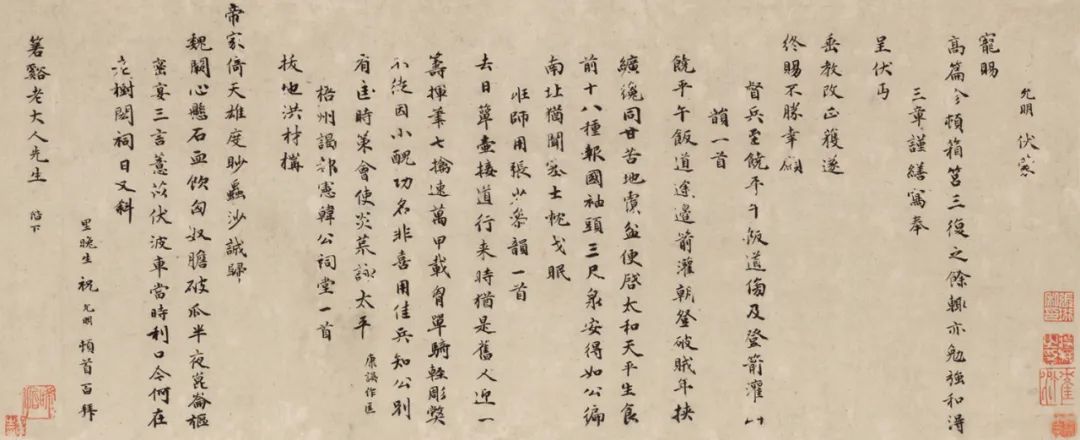 允明 伏蒙
寵賜
高篇今頓箱笤三復之餘輒亦勉強和得
三章謹繕寫奉
呈伏丐
垂教改正獲遂
終賜不勝幸願
督兵至饒平午飯道傷及登箭灌八
韻一首
饒平午飯道途邊箭灌朝登破賊年挾
纊纔同甘苦地賣盆便啓太和天平生食
前十八種報國袖頭三尺泉安得如公徧
南北猶聞士枕戈眠
班師用張少參韻一首
去日簞壺接道行来時猶是舊人迎一
籌揮筆七擒速萬甲載胷單騎輕彫獎
不徒因小醜功名非喜用佳兵知公別
有匡時策會使炎荒詠太平 康誤作匡
梧州謁都憲韓公祠堂一首
拔地洪材構
帝家倚天雄度眇蟲沙誠歸
魏闕心懸石血飲匈奴膽破瓜半夜崑崙樞
蜜宴三言薏苡伏波車當時利口今何在
老樹閟祠日又斜
箬谿老大人先生 下
里晚生祝允明頓首百拜